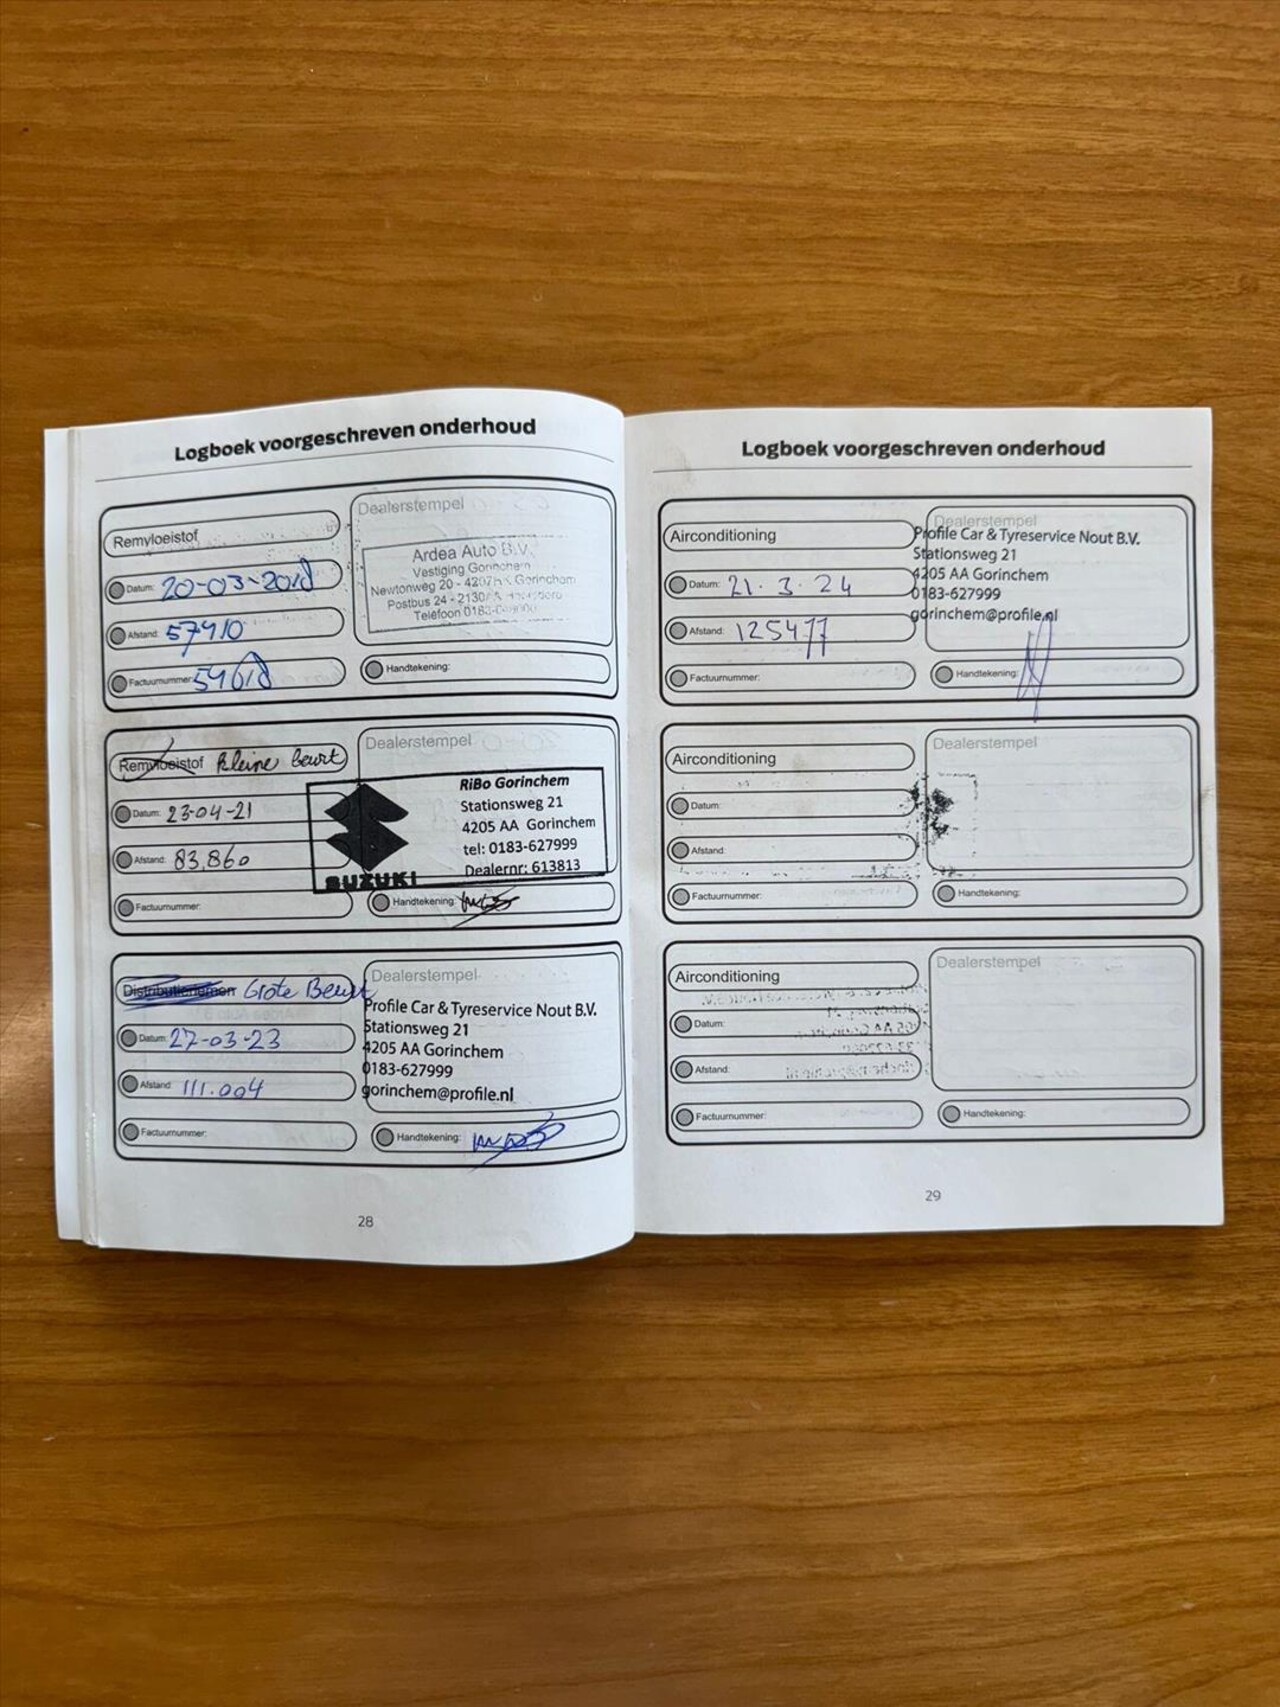 Logboek voorgeschreven onderhoud
Remvloeistof
Dealerstempel
Datum: 20-03-2018
Afstand: 57410
Factuurnummer: 54618
Ardea Auto B.V.
Vestiging Gorinchem
Newtonweg 20 - 4207HK Gorinchem
Postbus 24 - 2130
Telefoon 0183-
Handtekening:
Remvloeistof kleine beurt
Dealerstempel
Datum: 23-04-21
Afstand: 83.860
Factuurnummer:
SUZUKI
RiBo Gorinchem
Stationsweg 21
4205 AA Gorinchem
tel: 0183-627999
Dealernr: 613813
Handtekening:
Distributieriemen Grote Beurt
Dealerstempel
Datum: 27-03-23
Afstand: 111.004
Factuurnummer:
Profile Car & Tyreservice Nout B.V.
Stationsweg 21
4205 AA Gorinchem
0183-627999
gorinchem@profile.nl
Handtekening:
28
Logboek voorgeschreven onderhoud
Airconditioning
Dealerstempel
Datum: 21.3.24
Afstand: 125477
Factuurnummer:
Profile Car & Tyreservice Nout B.V.
Stationsweg 21
4205 AA Gorinchem
0183-627999
gorinchem@profile.nl
Handtekening:
Airconditioning
Dealerstempel
Datum:
Afstand:
Factuurnummer:
Handtekening:
Airconditioning
Dealerstempel
Datum:
Afstand:
Factuurnummer:
Handtekening:
29